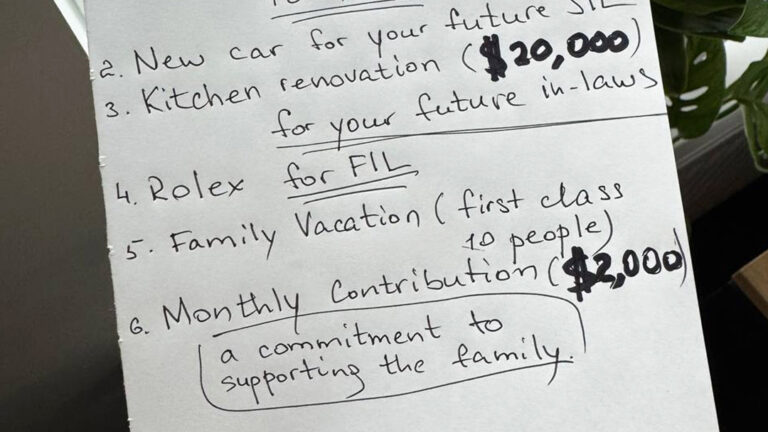 2. New car for your future SIL
3. Kitchen renovation ($20,000)
for your future in-laws
4. Rolex for FIL
5. Family Vacation (first class
10 people)
6. Monthly Contribution ($2,000)
a commitment to
supporting the family.